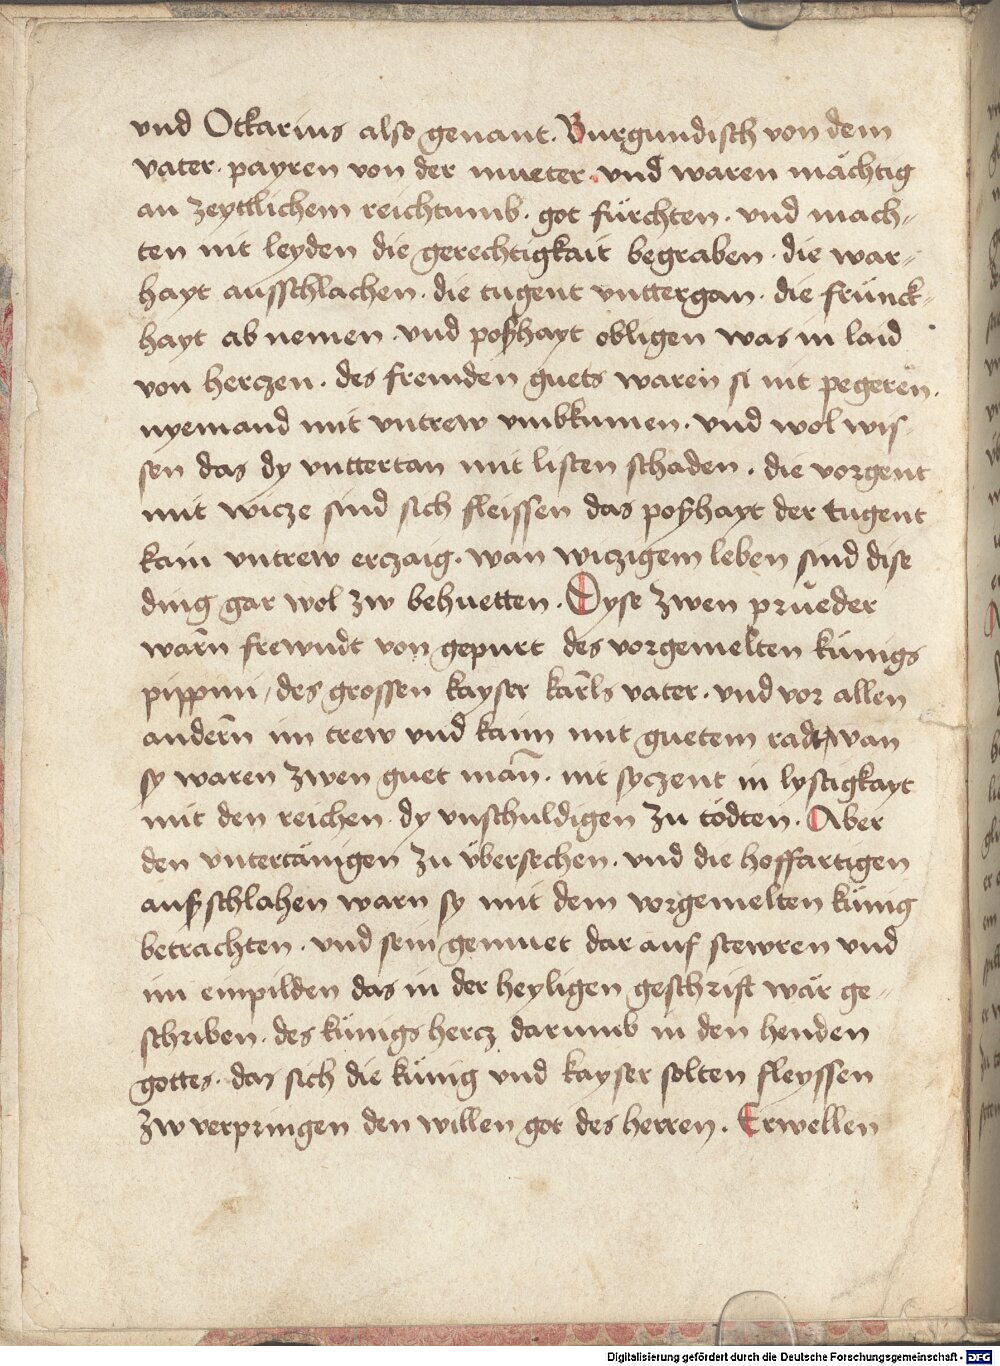 vnd Otkarius also genant. Burgundisch von dem
vater. payren von der mueter. vnd waren mächtig
an zeyttlichem reichtumb. got fürchten. vnd mach-
ten nit leyden die gerechtigkait begraben. die war-
hayt ausschlachen. die tugent vnttergan. die frünck-
hayt ab nemen. vnd poßhayt obligen was in laid
von herczen. des fremden guets waren si nit pegeren.
nyemand mit vntrew vmbkumen. vnd wol wis-
sen das dy vnttertan mit listen schaden. die vorgent
mit wicze sind sich fleissen das poßhayt der tugent
kain vntrew erczaig. wan wiczigem leben sind dise
ding gar wol zw behuetten. Dyse zwen prüeder
warn frewndt von gepurt des vorgemelten künigs
pippini, des grossen kayser karls vater. vnd vor allen
andern im trew vnd kainn mit guetem radt, wan
sy waren zwen guet man. nit syczent in lystigkayt
mit den reichen. dy vnschuldigen zu tödten. Aber
den vntertänigen zu übersechen. vnd die hoffartigen
außschlahen warn sy mit dem vorgemelten künig
betrachten. vnd sein gemuet dar auf stewren vnd
im einpilden das in der heyligen geschrift wär ge-
schriben. des künigs hercz darumb in den henden
gottes. das sich die künig vnd kayser solten fleyssen
zw verpringen den willen got des herren. Erwellen
Digitalisierung gefördert durch die Deutsche Forschungsgemeinschaft - DFG